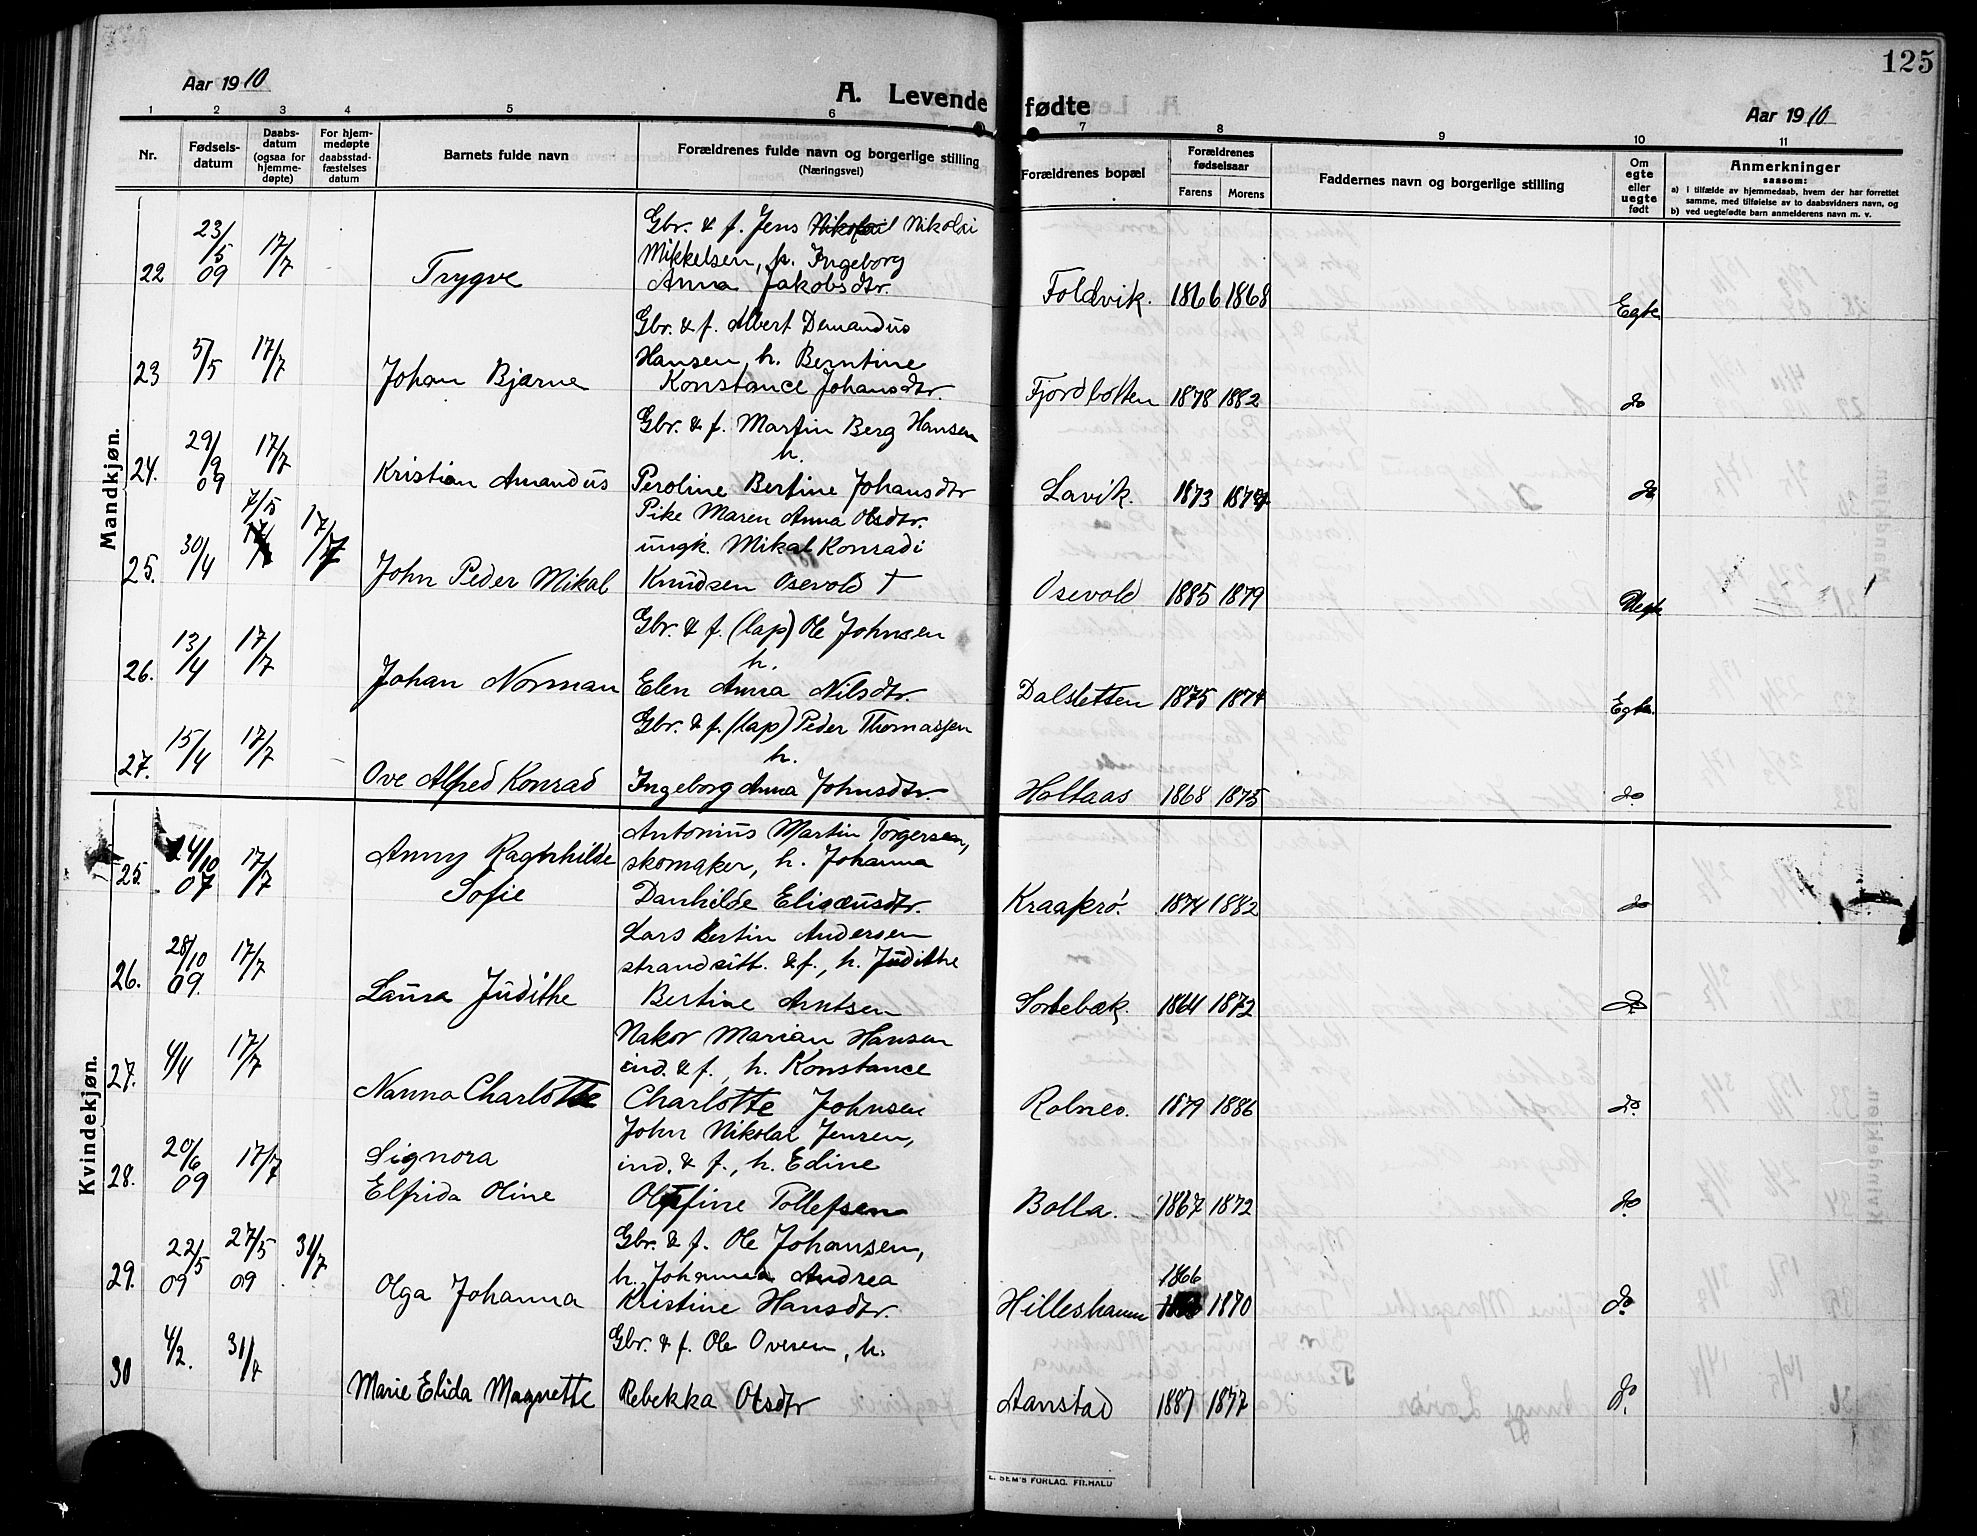 125
Aar 1910
A. Levende fødte
Aar 1910
1 2 3 4 5 6 7 8 9 10 11
Nr.
Fødsels-
datum
Daabs-
datum
(ogsaa for
hjemme-
døpte)
For hjem-
medøpte
daabsstad-
fæstelses
datum
Barnets fulde navn
Forældrenes fulde navn og borgerlige stilling
(Næringsvei)
Forældrenes bopæl
Forældrenes
fødselsaar
Farens Morens
Faddernes navn og borgerlige stilling
Om
egte
eller
uegte
født
Anmerkninger
saasom:
a) i tilfælde av hjemmedaab, hvem der har forrettet
samme, med tilføielse av to daabsvidners navn, og
b) ved uegtefødte barn anmelderens navn m. v.
Mandkjøn.
Gbr. & f. Jens Nikolai Nikolai
23/5 17/7 Mikkelsen, h. Ingeborg
22 09 Trygve Anna Jakobsdtr. Foldvik. 1866 1868 Egte
Gbr. & f. Albert Demandus
5/5 17/7 Hansen, h. Berntine
23 Johan Bjarne Konstance Johansdtr. Fjordbotten 1878 1882 do
Gbr. & f. Martin Berg Hansen
29/9 17/7 h.
24. 09 Kristian Amandus Peroline Bertine Johansdtr Lavik. 1873 1874 do
7/5 Pike Maren Anna Olsdtr.
30/4 17/7 ungk. Mikal Konradi
25. John Peder Mikal Knudsen Osevold † Osevold 1885 1879 Uegte
Gbr. & f. (lap) Ole Johnsen
13/4 17/7 h.
26. Johan Norman Elen Anna Nilsdtr. Dalsletten 1875 1874 Egte.
Gbr. & f. (lap) Peder Thomassen
15/4 17/7 h.
27. Ove Alfred Konrad Ingeborg Anna Johnsdtr. Holtaas 1868 1875 do
Kvindekjøn.
Antonius Martin Torgersen,
24/10 17/7 Anny Ragnhilde skomaker, h. Johanna
25. 07 Sofie Danhilde Elisæusdtr. Kraakrø. 1874 1882 do
Lars Bertin Andersen
28/10 17/7 strandsitt. & f., h. Judithe
26. 09. Laura Judithe Bertine Arntsen Sortebæk. 1864 1872 do
Nakor Marian Hansen
4/4 17/7 ind. & f., h. Konstance
27. Nanna Charlotte Charlotte Johnsen Rolnes. 1879 1886 do.
John Nikolai Jensen,
20/6 17/7 Signora ind. & f., h. Edine
28. 09 Elfrida Oline Olufine Tollefsen Bolla. 1867 1872 do
Gbr. & f. Ole Johansen,
22/5 27/5 31/7 h. Johanna Andrea 1866
29. 09 09 Olga Johanna Kristine Hansdtr. Hilleshamn 1870 do.
4/2. 31/7 Gbr. & f. Ole Ovesen, h.
30 Marie Elida Magnette Rebekka Olsdtr Aanstad 1887 1877 do.
E. SEM'S FORLAG. FR.HALD